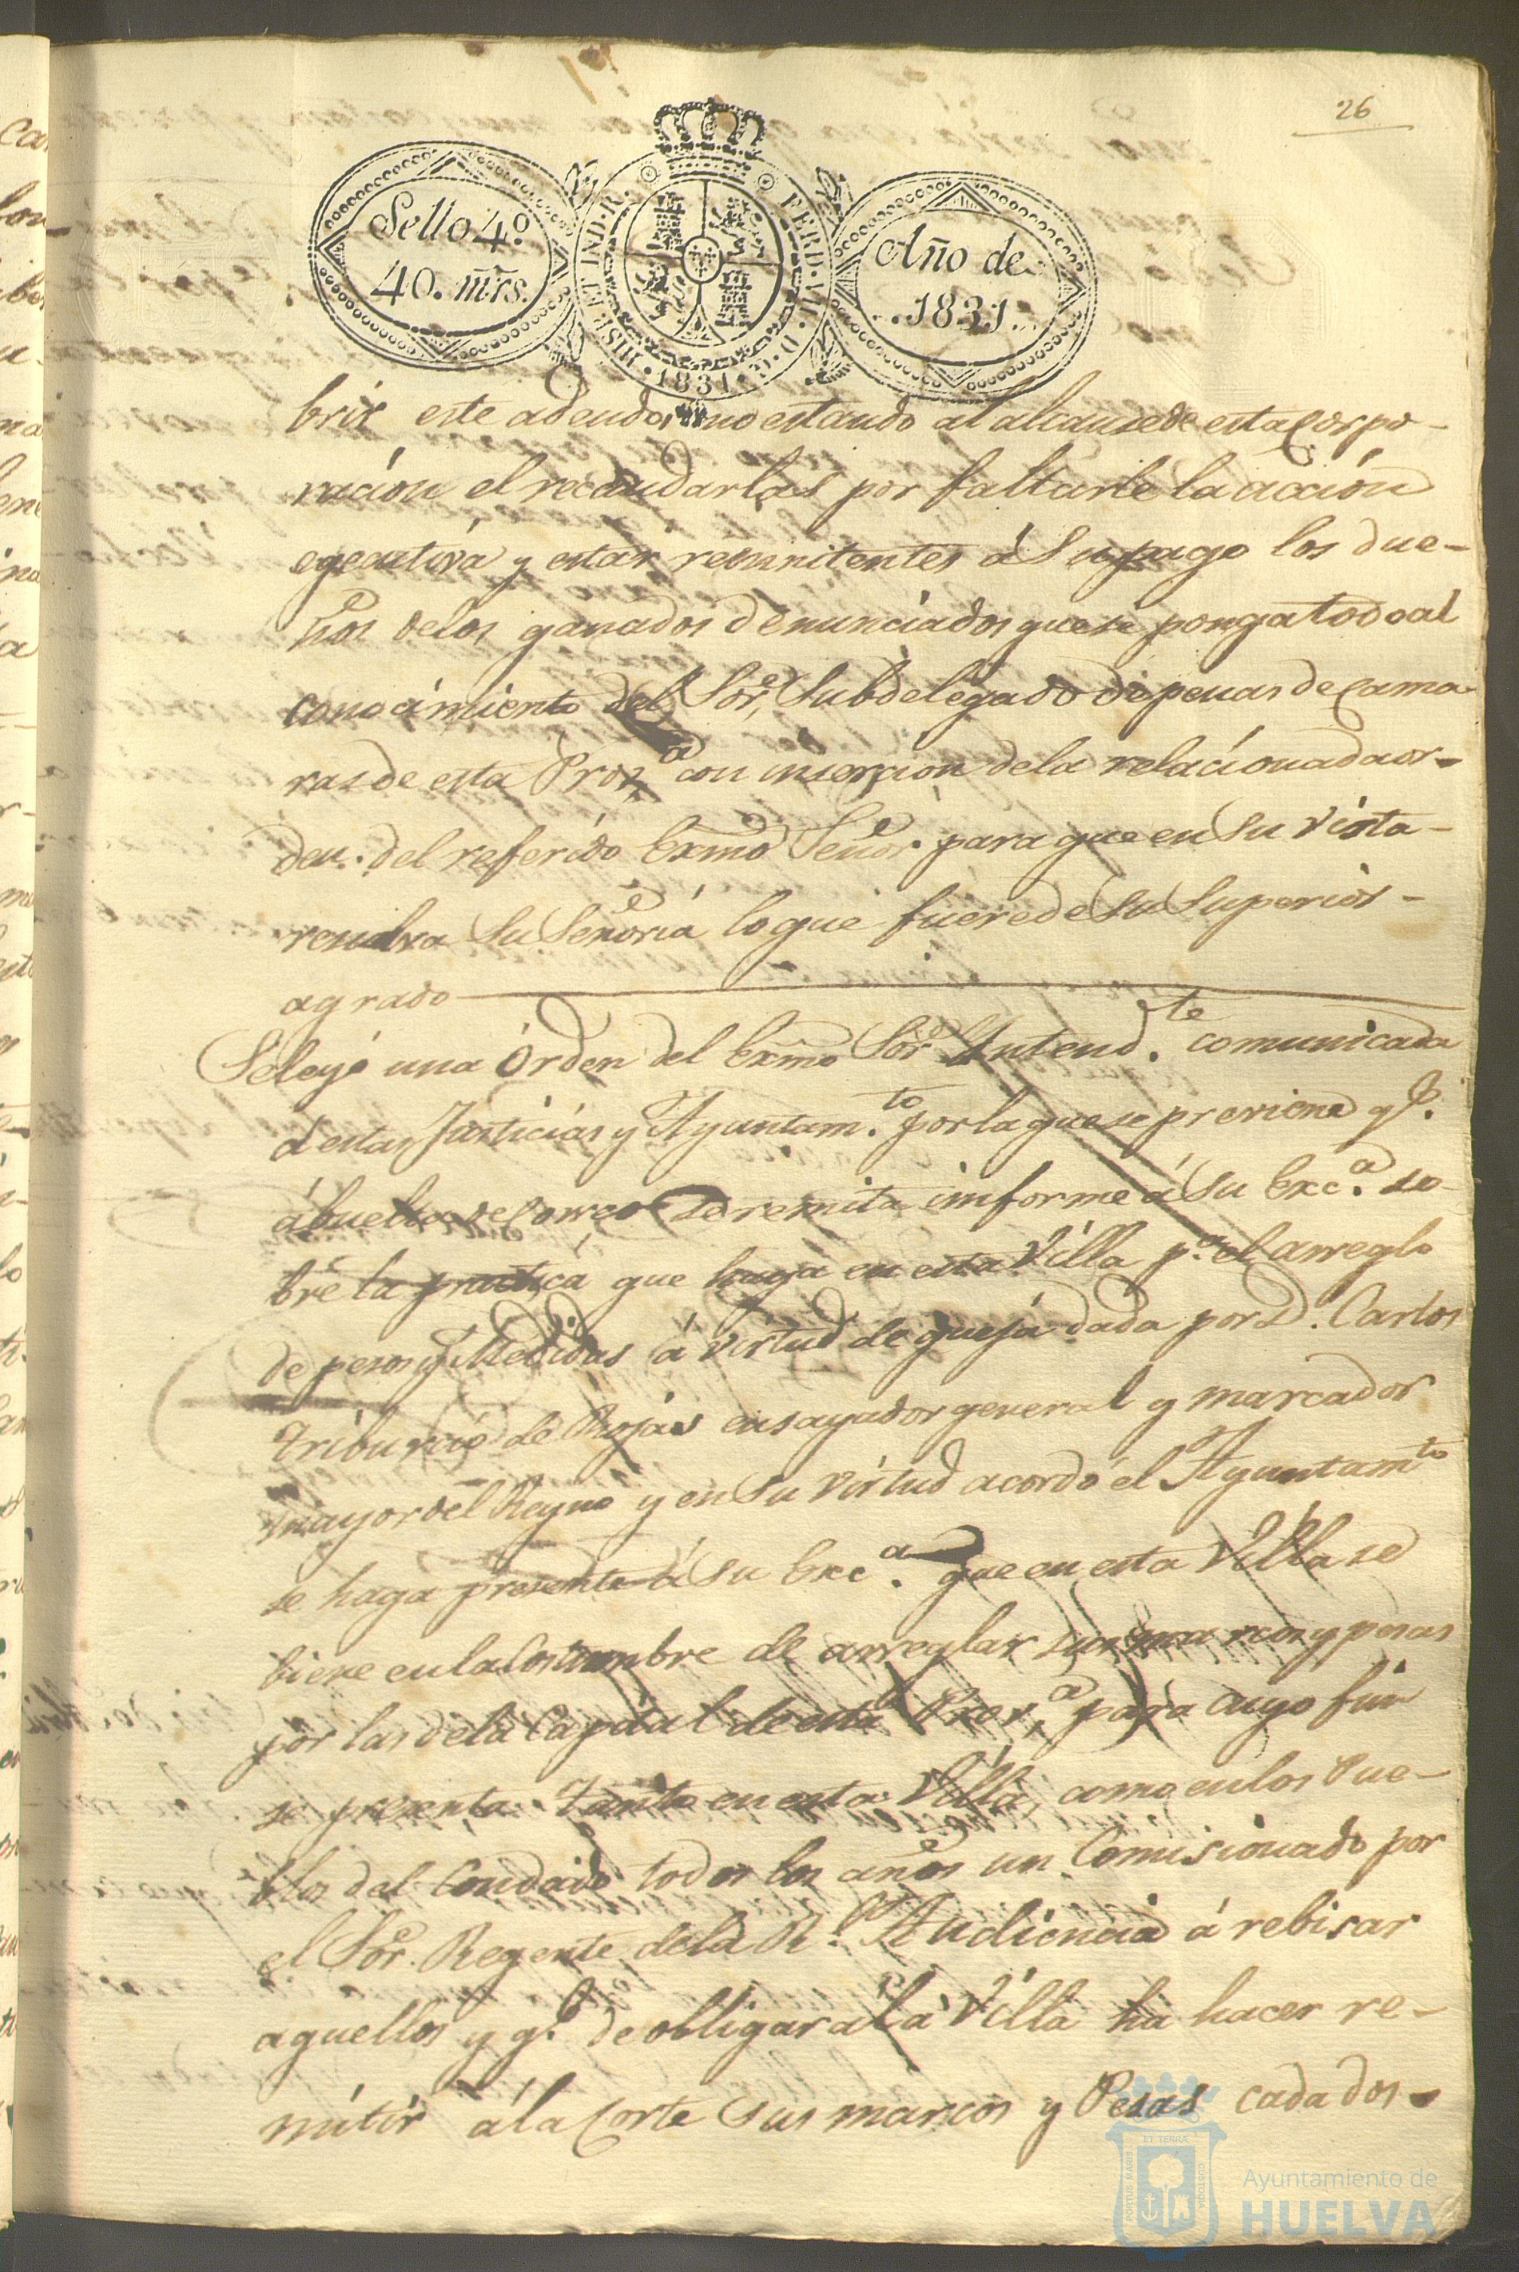 26
Sello 4º
40. mrs.
HISP. ET IND. R. FERD. VII. D. G. 1831
Año de
1831
brir este adeudo, no estando al alcanse de esta Corpo-
racion el recaudarlas por faltarle la acción
egecutiva y estar renunitentes á Su pago los due-
ños de los ganados denunciados que se ponga todo al
conocimiento del Sor. Subdelegado de penas de Cama-
ras de esta Prov.a con insercion de la relacionada or-
den. del referido Exmo Señor para que en Su vista-
resuelva Su Señoría lo que fuere de Su Superior-
agrado
Se leyó una Órden del Exmo Sor. Intend.te comunicada
á estas Justicias y Ayuntam.to por la que se previene q.e
á buelta de Correo se remita imforme á Su Exc.a so-
bre la practica que haya en esta Villa p.a el arreglo
de pesos y Medidas á virtud de queja dada por D. Carlos
Triburcio de Rojas ensayador general y marcador
mayor del Reyno y en Su virtud acordó el Ayuntam.to
se haga presente á Su Exc.a que en esta Villa se
biene en la Costumbre de arreglar sus marcos y pesas
por las de la Capital de esta Prov.a para cuyo fin
se presenta tanto en esta Villa, como en los Pue-
blos del Condado todos los años un Comisionado por
el Sor. Regente de la R.l Audiencia á rebisar
aquellos y q.e de obligar a la Villa ha hacer re-
mitir á la Corte Sus marcos y Pesas cada dos-
PORTUS MARIS ET TERRAE CUSTODIA
Ayuntamiento de
HUELVA